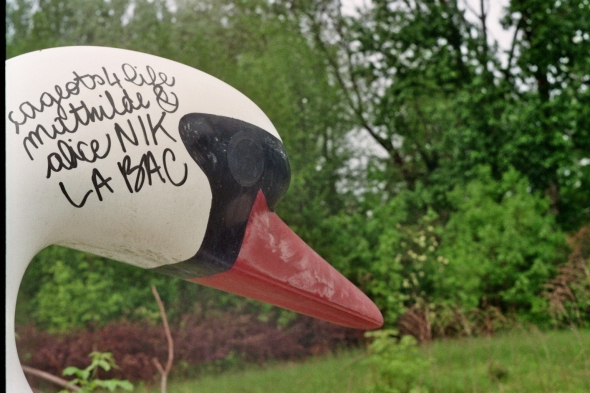 cageots4life
mathilde &
alice NIK
LA BAC